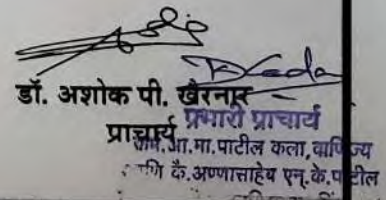 डॉ. अशोक पी. खैरनार
प्राचार्य प्रभारी प्राचार्य
आ.मा.पाटील कला, वाणिज्य
आणि कै.अण्णासाहेब एन.के.पाटील